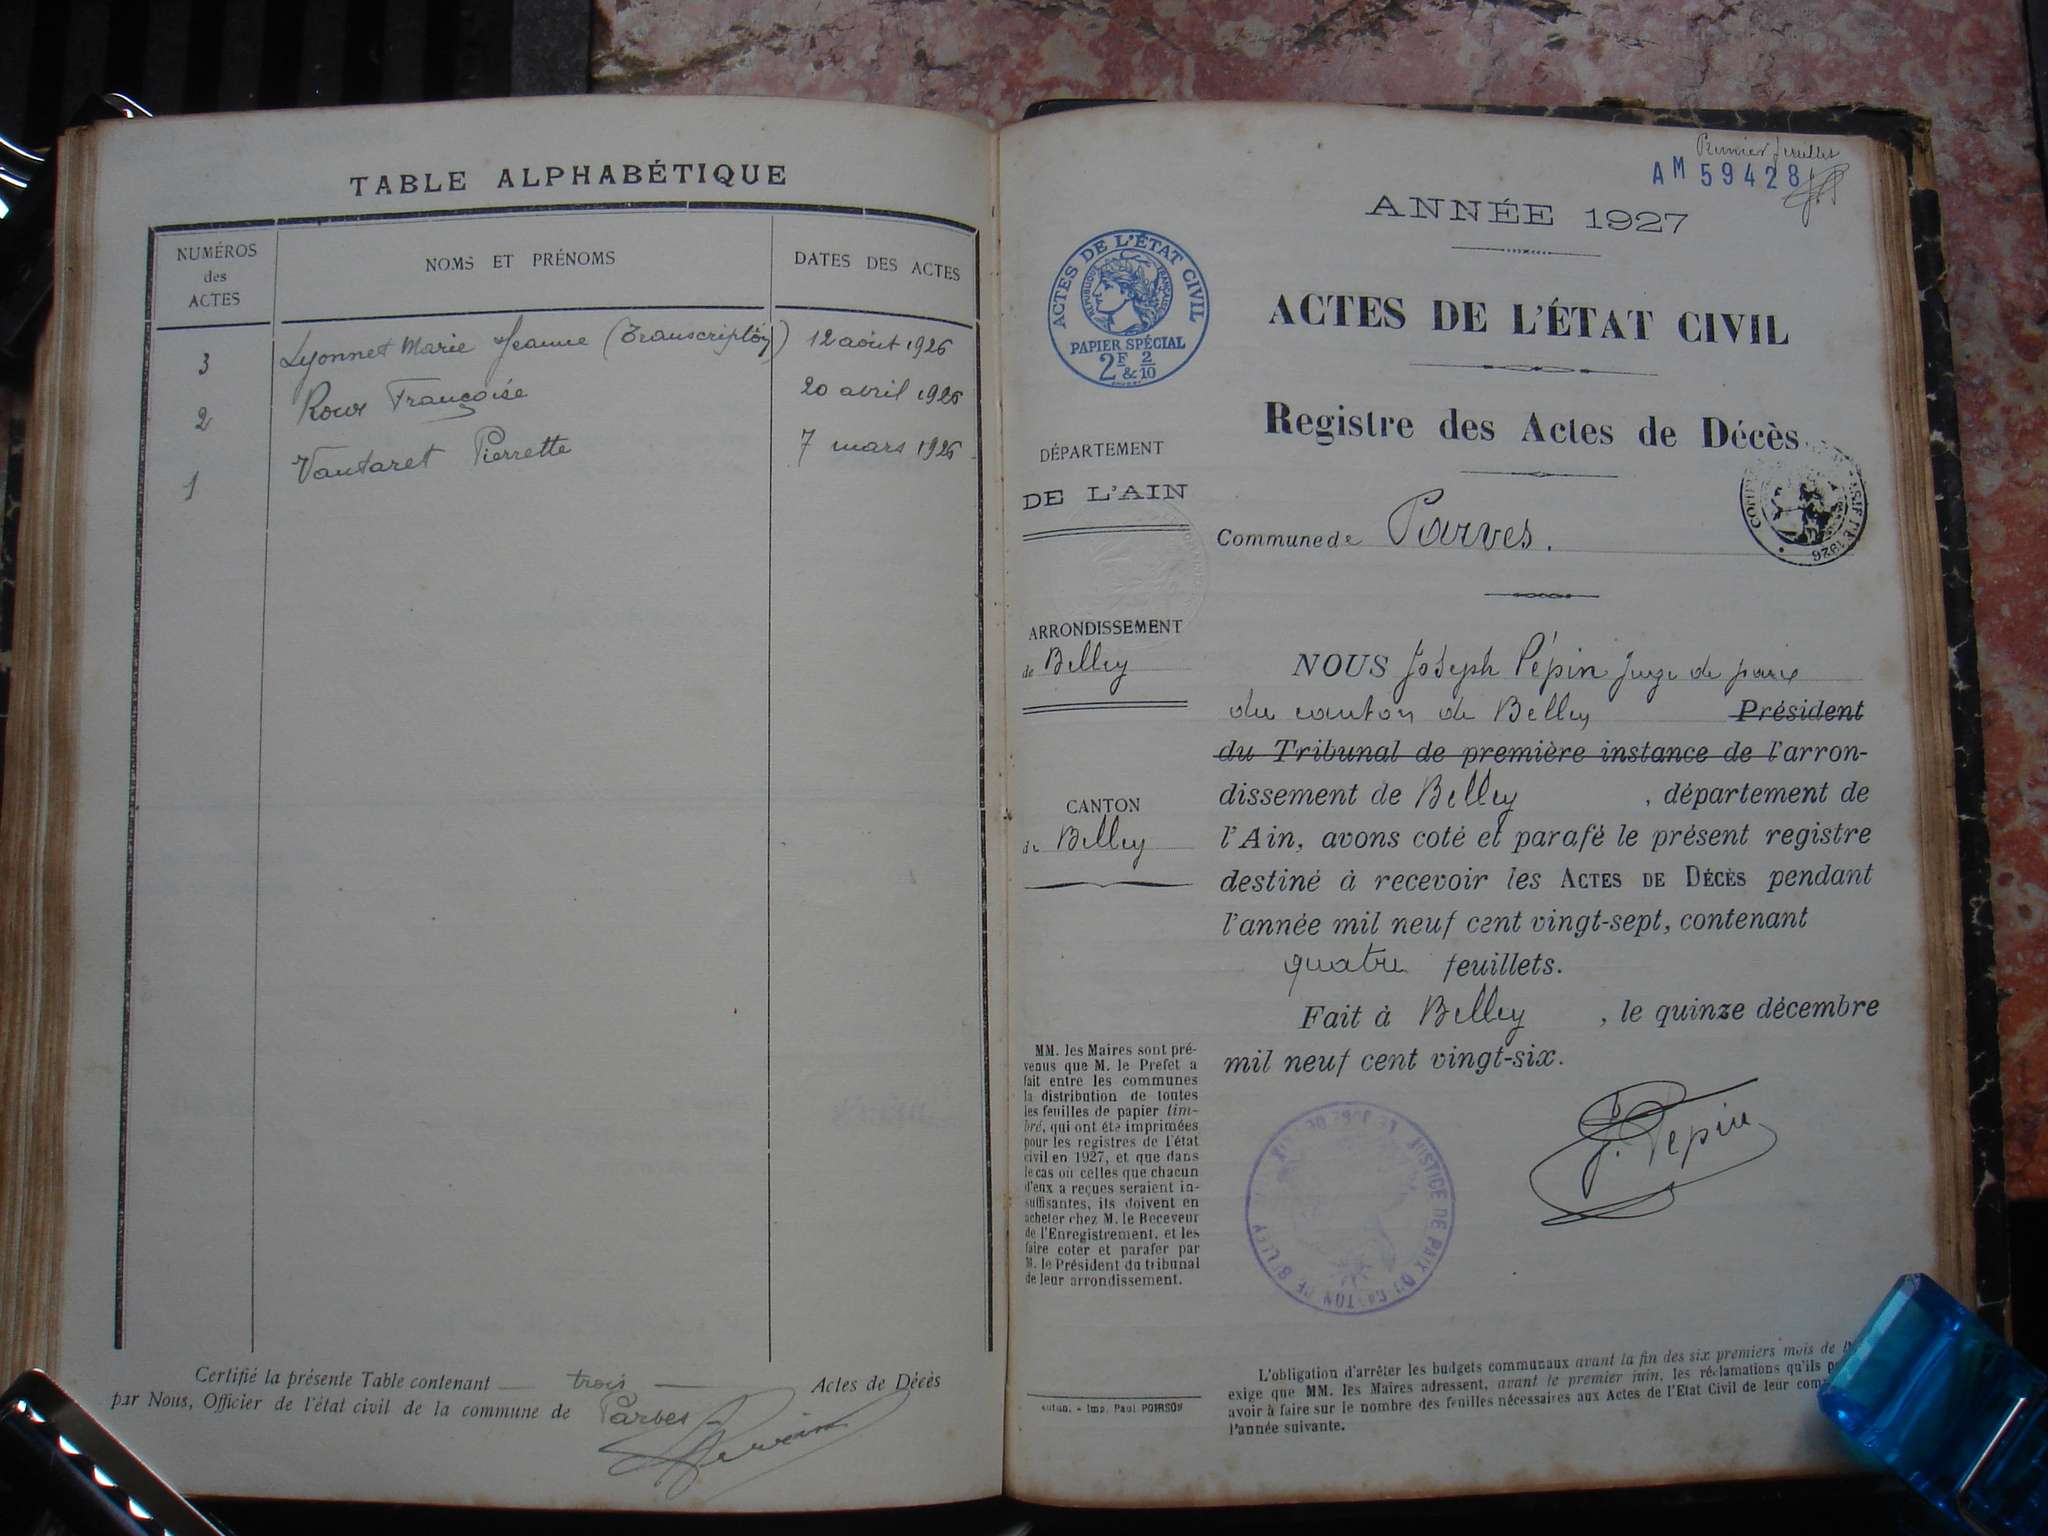 TABLE ALPHABÉTIQUE
NUMÉROS
des
ACTES
NOMS ET PRÉNOMS
DATES DES ACTES
3 Lyonnet Marie Jeanne (Transcription) 12 août 1926
2 Roux Françoise 20 avril 1926
1 Vautaret Pierrette 7 mars 1926
Certifié la présente Table contenant trois Actes de Décès
par Nous, Officier de l'état civil de la commune de Parves
Premier feuillet
AM 59428
ANNÉE 1927
ACTES DE L'ÉTAT CIVIL
RÉPUBLIQUE FRANÇAISE
PAPIER SPÉCIAL
2F & 2/10
ACTES DE L'ÉTAT CIVIL
Registre des Actes de Décès
DÉPARTEMENT
DE L'AIN
Commune de Parves.
1926
ARRONDISSEMENT
de Belley
CANTON
de Belley
NOUS Joseph Pépin Juge de paix
du canton de Belley Président
du Tribunal de première instance de l'arron-
dissement de Belley, département de
l'Ain, avons coté et parafé le présent registre
destiné à recevoir les ACTES DE DÉCÈS pendant
l'année mil neuf cent vingt-sept, contenant
quatre feuillets.
Fait à Belley, le quinze décembre
mil neuf cent vingt-six.
J. Pépin
JUSTICE DE PAIX DU CANTON DE BELLEY
MM. les Maires sont pré-
venus que M. le Préfet a
fait entre les communes
la distribution de toutes
les feuilles de papier tim-
bré, qui ont été imprimées
pour les registres de l'état
civil en 1927, et que dans
le cas où celles que chacun
d'eux a reçues seraient in-
suffisantes, ils doivent en
acheter chez M. le Receveur
de l'Enregistrement, et les
faire coter et parafer par
M. le Président du tribunal
de leur arrondissement.
- Imp. Paul POIRSON
L'obligation d'arrêter les budgets communaux avant la fin des six premiers mois de
exige que MM. les Maires adressent, avant le premier juin, les réclamations qu'ils
avoir à faire sur le nombre des feuilles nécessaires aux Actes de l'Etat Civil de leur
l'année suivante.